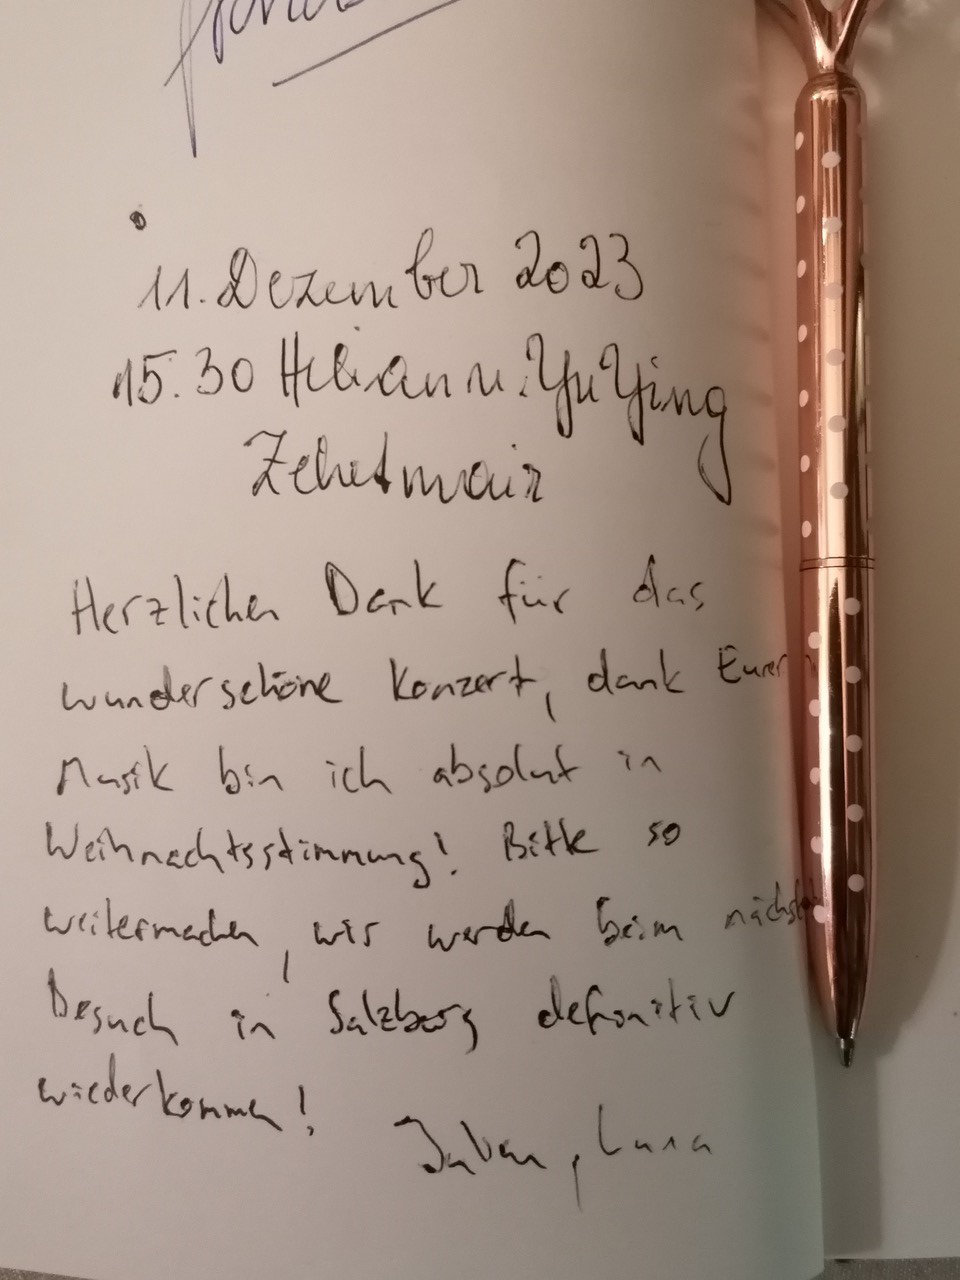 11. Dezember 2023
15.30 Helian u. YuYing
Zehetmair
Herzlichen Dank für das
wunderschöne Konzert, dank Eurer
Musik bin ich absolut in
Weihnachtsstimmung! Bitte so
weitermachen, wir werden beim nächsten
Besuch in Salzburg definitiv
wiederkommen!
Luna